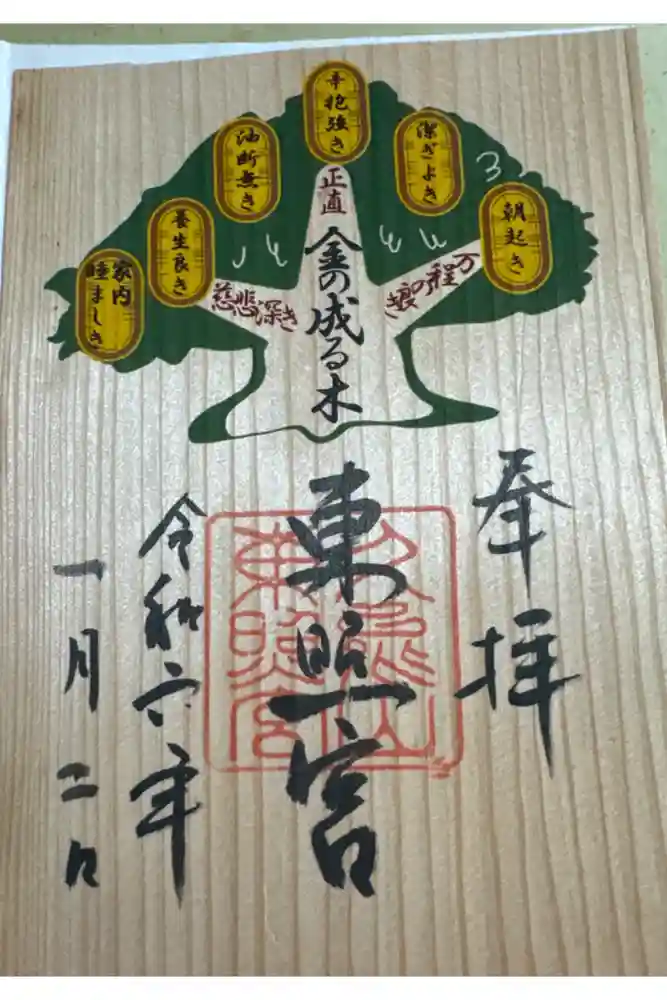 朝起き
潔ぎよき
辛抱強き
油断無き
養生良き
家内
睦ましき
万程の良き
正直
慈悲深き
金の成る木
奉拝
東照宮
令和六年
一月二日